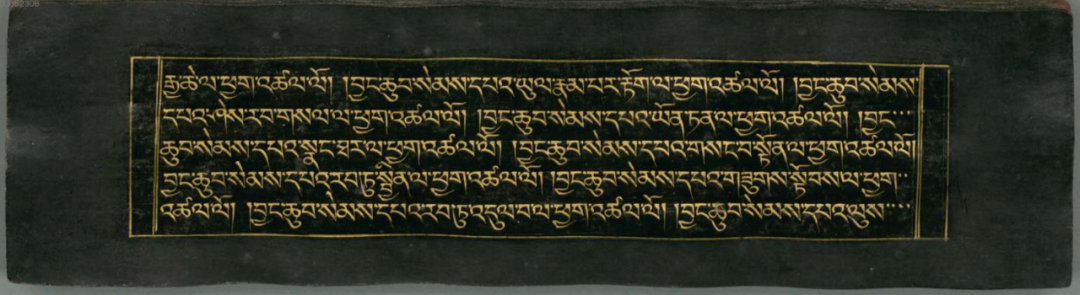 རྒྱ་ཆེ་ལ་ཕྱག་འཚལ་ལོ། །བྱང་ཆུབ་སེམས་དཔའ་ཡུལ་རྣམ་པར་རྟོག་ལ་ཕྱག་འཚལ་ལོ། །བྱང་ཆུབ་སེམས་
དཔའ་ཤེས་རབ་གསལ་ལ་ཕྱག་འཚལ་ལོ། །བྱང་ཆུབ་སེམས་དཔའ་ཡོན་ཏན་ལ་ཕྱག་འཚལ་ལོ། །བྱང་
ཆུབ་སེམས་དཔའ་སྣང་ཐར་ལ་ཕྱག་འཚལ་ལོ། །བྱང་ཆུབ་སེམས་དཔའ་གས་ང་བ་སྟོན་ལ་ཕྱག་འཚལ་ལོ།
བྱང་ཆུབ་སེམས་དཔའ་རབ་ཏུ་སྦྱིན་ལ་ཕྱག་འཚལ་ལོ། །བྱང་ཆུབ་སེམས་དཔའ་གཟུགས་སྟོབས་ལ་ཕྱག་
འཚལ་ལོ། །བྱང་ཆུབ་སེམས་དཔའ་རབ་ཏུ་འདུལ་བ་ལ་ཕྱག་འཚལ་ལོ། །བྱང་ཆུབ་སེམས་དཔའ་ལུས་